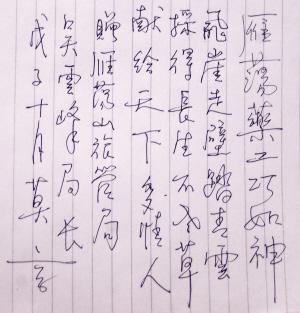 雁蕩藥工巧如神
飛崖走壁踏青雲
採得長生不老草
献给天下多情人
贈雁蕩山旅管局
吴雲峰局长
戊子十月莫言